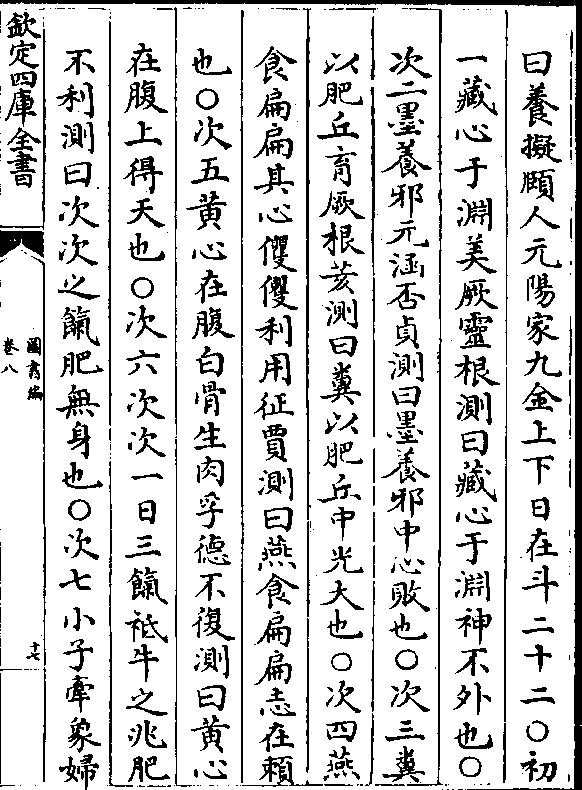 曰養擬頤人元陽家九金上下日在斗二十二○初
一藏心于淵美厥靈根測曰藏心于淵神不外也○
次二墨養邪元涵否貞測曰墨養邪中心敗也○次三糞
以肥丘育厥根荄測曰糞以肥丘中光大也○次四燕
食扁扁其心㒧㒧利用征賈測曰燕食扁扁志在頼
也○次五黄心在腹白骨生肉孚德不復測曰黄心
在腹上得天也○次六次次一日三餼祗牛之兆肥
不利測曰次次之餼肥無身也○次七小子牽象婦
欽定四庫全書
圖書編
卷八
十七